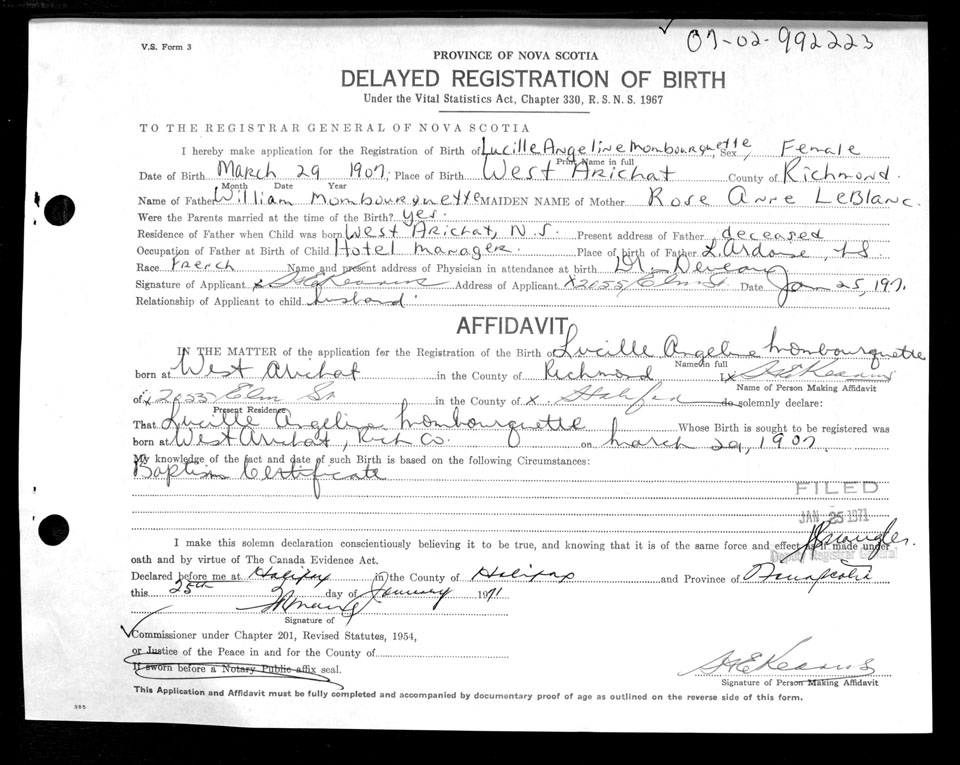 07-02-992223
V.S. Form 3
PROVINCE OF NOVA SCOTIA
DELAYED REGISTRATION OF BIRTH
Under the Vital Statistics Act, Chapter 330, R.S.N.S. 1967
TO THE REGISTRAR GENERAL OF NOVA SCOTIA
I hereby make application for the Registration of Birth of Lucille Angeline Mombourquette, Sex, Female
Print Name in full
Date of Birth March 29 1907, Place of Birth West Arichat County of Richmond.
Month Date Year
Name of Father William Mombourquette MAIDEN NAME of Mother Rose Anne LeBlanc.
Were the Parents married at the time of the Birth? yes.
Residence of Father when Child was born West Arichat, N.S. Present address of Father deceased
Occupation of Father at Birth of Child Hotel manager. Place of birth of Father L'Ardoise, NS
Race French Name and present address of Physician in attendance at birth Dr.
Signature of Applicant x Kearns Address of Applicant x 2055 Elm St. Date Jan 25, 197
Relationship of Applicant to child husband.
AFFIDAVIT
IN THE MATTER of the application for the Registration of the Birth of Lucille Angeline Mombourquette
Name in full
born at West Arichat in the County of Richmond I x Kearns
Name of Person Making Affidavit
of x 2055 Elm St in the County of x Halifax do solemnly declare:
Present Residence
That Lucille Angeline Mombourquette Whose Birth is sought to be registered was
born at West Arichat, Rich Co. on March 29, 1907
My knowledge of the fact and date of such Birth is based on the following Circumstances:
Baptism Certificate
FILED
JAN 25 1971
I make this solemn declaration conscientiously believing it to be true, and knowing that it is of the same force and effect as if made under
Deputy Registrar General
oath and by virtue of The Canada Evidence Act.
Declared before me at Halifax in the County of Halifax and Province of Nova Scotia
this 25th day of January 1971
Signature of
Commissioner under Chapter 201, Revised Statutes, 1954,
or Justice of the Peace in and for the County of
If sworn before a Notary Public affix seal.
Kearns
Signature of Person Making Affidavit
This Application and Affidavit must be fully completed and accompanied by documentary proof of age as outlined on the reverse side of this form.